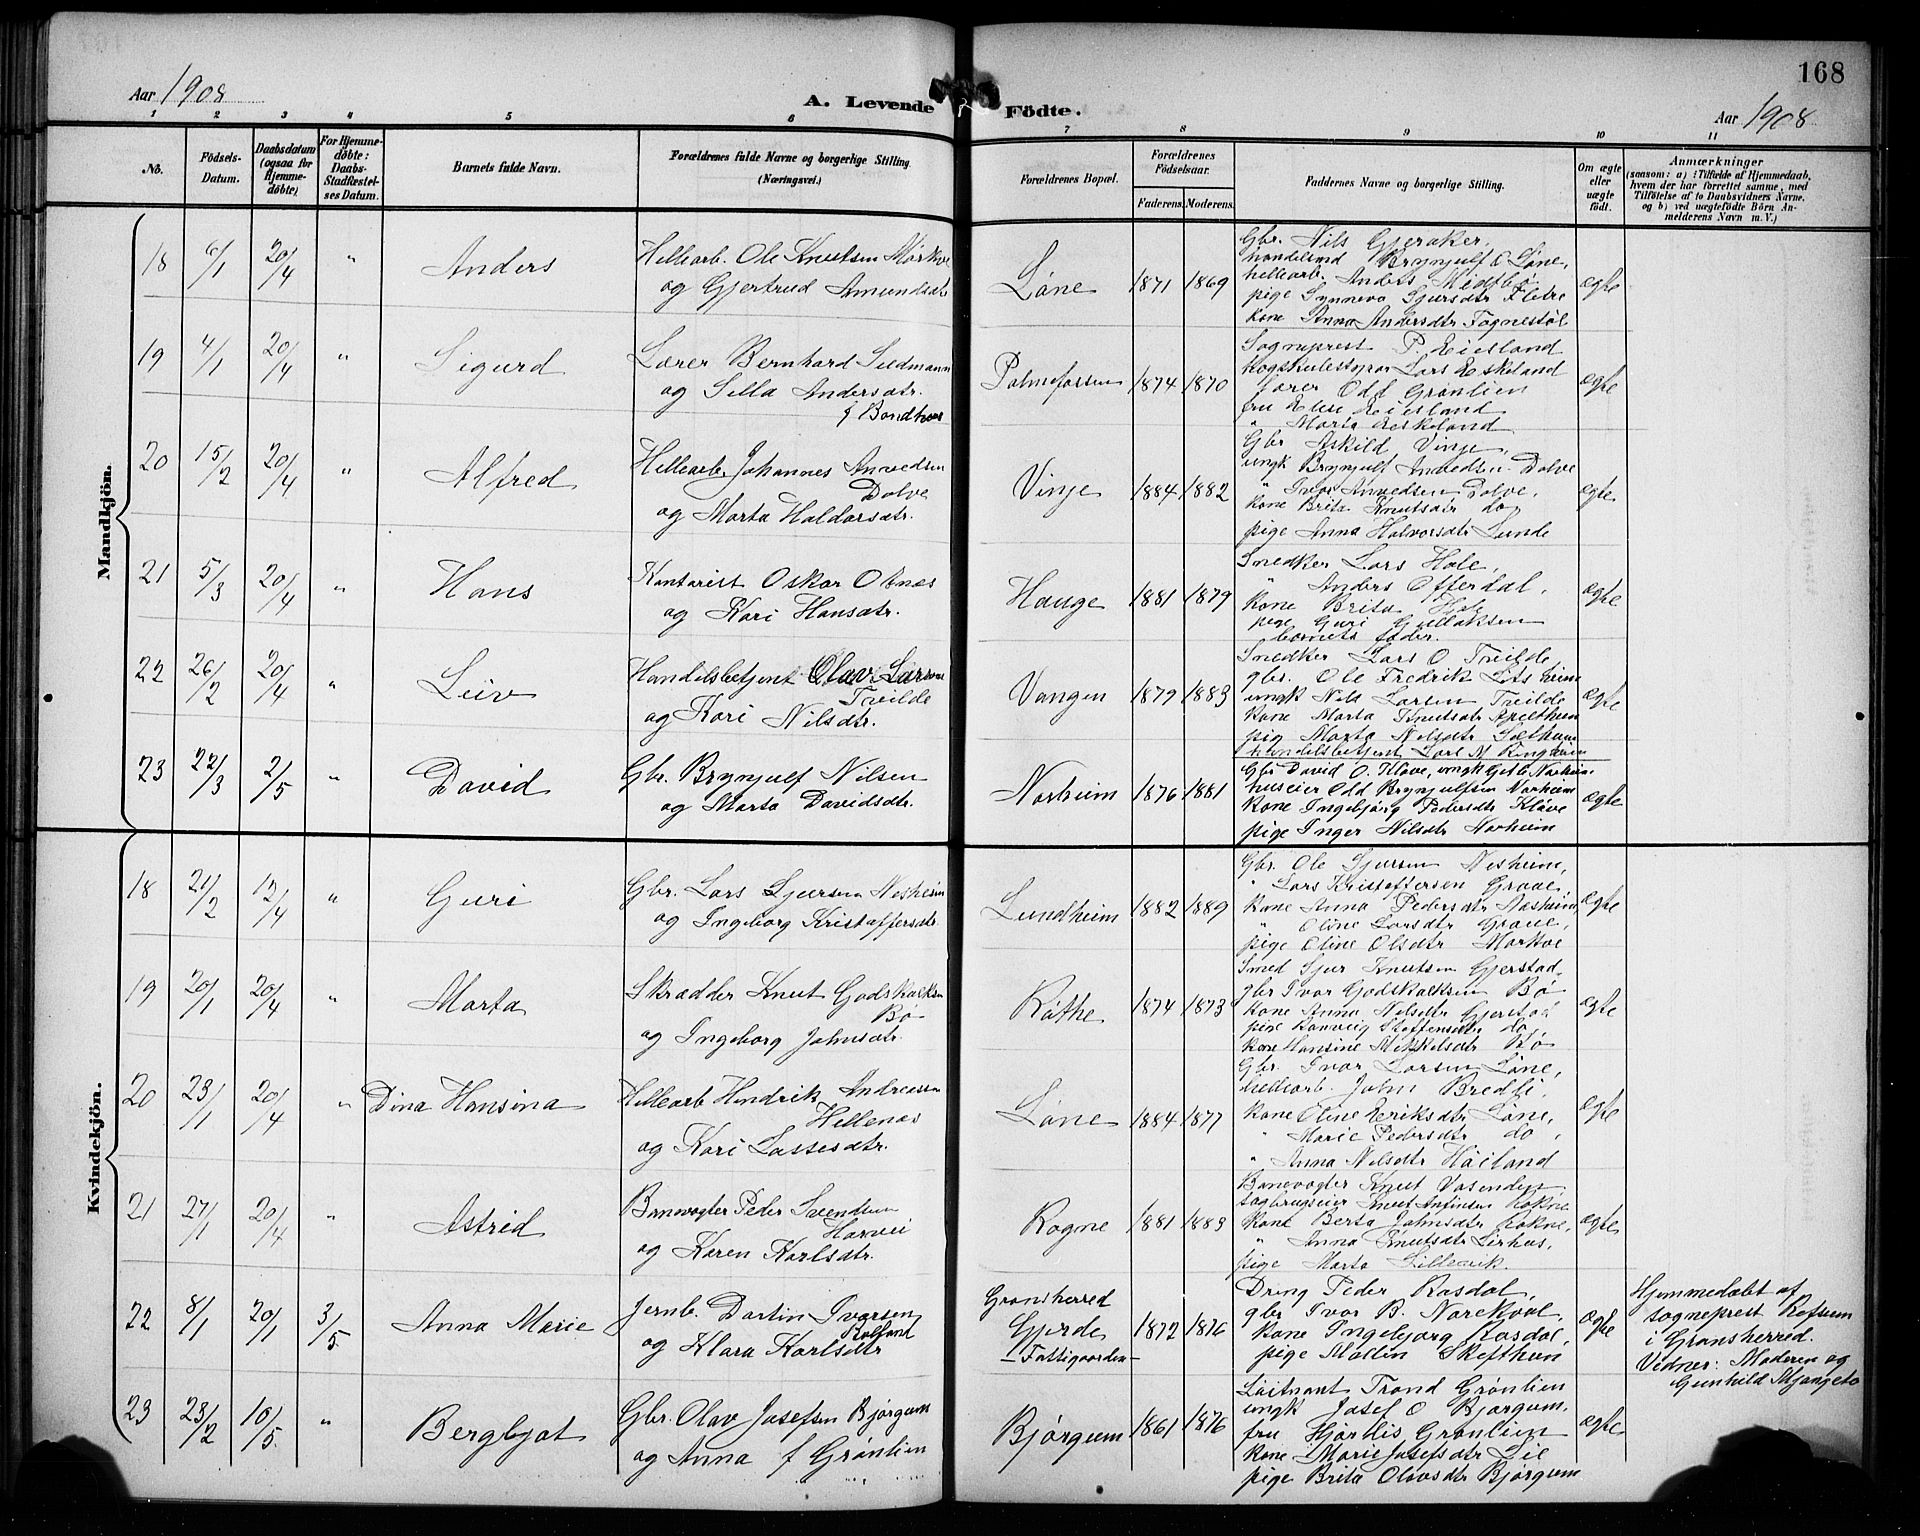 168
Aar 1908
A. Levende Födte.
Aar 1908
1 2 3 4 5 6 7 8 9 10 11
No.
Födsels-
Datum.
Daabsdatum
(ogsaa for
Hjemme-
döbte)
For Hjemme-
döbte:
Daabs-
Stadfæstel-
ses Datum.
Barnets fulde Navn.
Forældrenes fulde Navne og borgerlige Stilling
(Næringsvei.)
Forældrenes Bopæl.
Forældrenes
Födselsaar.
Faderens. Moderens.
Faddernes Navne og borgerlige Stilling.
Om ægte
eller
uægte
födt.
Anmærkninger
(saasom: a) i Tilfælde af Hjemmedaab,
hvem der har forrettet samme, med
Tilföielse af to Daabsvidners Navne,
og b) ved uægtefödte Börn An-
melderens Navn m. V.)
Mandkjön.
18 6/1 20/4 " Anders
Hellearb. Ole Knutsen Mørkve
og Gjertrud Amundsdtr
Løne 1871 1869
Gbr. Nils Gjeraker,
handelsmd Brynjulf O Løne,
hellearb. Anders Midtbø,
pige Synneva Sjursdtr Fletre
kone Anna Andersdtr Fagnestøl
ægte
19 4/1 20/4 " Sigurd
Lærer Bernhard Seldmann
og Silla Andersdtr.
f Bondhus
Palmefossen 1874 1870
Sogneprest P. Eiesland
høgskulestyrar Lars Eskeland
lærer Odd Grønlien
fru Elise Eiesland
" Marta Eskeland
ægte
20 15/2 20/4 " Alfred
Hellearb. Johannes Anvedsen
Dolve
og Marta Haldorsdtr.
Vinje 1884 1882
Gbr Askild Vinje
ungk Brynjulf Anvedsen Dolve
" Ivar Anvedsen Dolve,
kone Brita Knutsdtr do,
pige Anna Halvorsdtr Lunde
ægte
21 5/3 20/4 " Hans
Kontorist Oskar Olsnes
og Kari Hansdtr.
Hauge 1881 1879
Snedker Lars Hole,
" Anders Offerdal,
kone Brita Hole
pige Guri Gullaksen
barnets fader.
ægte
22 26/2 20/4 " Leiv
Handelsbetjent Olav Larsen
Tveilde
og Kari Nilsdtr.
Vangen 1879 1883
Snedker Lars O Tveilde
gbr. Ole Fredrik Lidsheim
ungk Nils Larsen Tveilde
kone Marta Knutsdtr Apeltun
pig Marta Nilsdtr Sætheim
handelsbetjent Lars M Ringheim
ægte
23 22/3 2/5 " David
Gbr. Brynjulf Nilsen
og Marta Davidsdtr.
Norheim 1876 1881
Gbr David O. Kløve, ungk Gitle Norheim
huseier Odd Brynjulfsen Norheim
kone Ingebjørg Pedersdtr Kløve
pige Inger Nilsdtr Norheim
ægte
Kvindekjön.
18 21/2 12/4 " Guri
Gbr. Lars Sjursen Nesheim
og Ingeborg Kristoffersdtr.
Lundheim 1882 1889
Gbr. Ole Sjursen Nesheim,
" Lars Kristoffersen Graue,
kone Anna Pedersdtr Næsheim,
" Oline Larsdtr Graue,
pige Oline Olsdtr Mørkve
ægte
19 20/1 20/4 " Marta
Skrædder Knut Godskalksen
Bø
og Ingeborg Johnsdtr.
Røthe 1874 1873
Smed Sjur Knutsen Gjerstad,
gbr Ivar Godskalksen Bø
kone Anna Nilsdtr Gjerstad
pige Ranveig Steffensdtr do,
kone Hansine Mikkelsdtr Bø
ægte
20 23/1 20/4 " Dina Hansina
Hellearb Hendrik Andreassen
Hellenæs
og Kari Lassesdtr.
Løne 1884 1877
Gbr. Ivar Larsen Løne,
hellearb. John Bredli,
kone Oline Eriksdtr Løne,
" Marie Pedersdtr do,
" Anna Nilsdtr Høiland
ægte
21 27/1 20/4 " Astrid
Banevogter Peder Svendsen
Harvei
og Karen Karlsdtr.
Rogne 1881 1883
Banevogter Knut Vasenden
sagbrugseier Knut Anfindsen Rokne
kone Berta Johnsdtr Rokne,
" Anna Knutsdtr Lirhus,
pige Marta Lillevik.
ægte
22 8/1 20/1 3/5. Anna Marie
Jernb. Dortin Ivarsen
Rolland
og Klara Karlsdtr
Gransherred
Gjerde
- Fattiggaarden -
1872 1876
Dreng Peder Rosdal,
gbr Ivar B. Norekval
kone Ingebjørg Rosdal,
pige Malin Skefthun
ægte
Hjemmedøbt af
sogneprest Rofsum
i Gransherred.
Vidner: Moderen og
Gunhild
23 23/2 10/5. " Bergljot
Gbr. Olav Josefsen Bjørgum
og Anna f Grønlien
Bjørgum 1861 1876
Løitnant Trond Grønlien
ungk Josef O Bjørgum,
fru Hjørdis Grønlien
kone Marie Josefsdtr Lie
pige Brita Olavsdtr Bjørgum
ægte